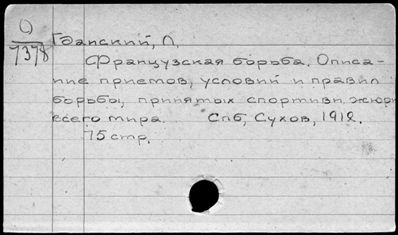 О
7378
Гданский, Л.
Французская борьба. Описа-
ние приемов, условий и правил
борьбы, принятых спортивн. жюри
всего мира. Спб, Сухов, 1912.
75 стр.